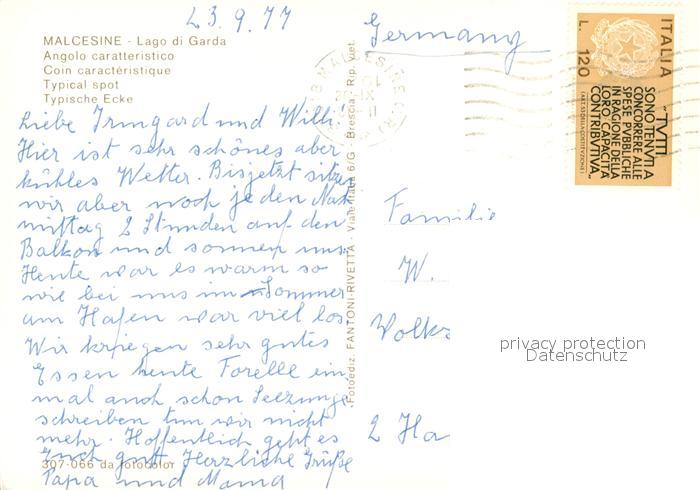 23.9.77
MALCESINE - Lago di Garda
Angolo caratteristico
Coin caractéristique
Typical spot
Typische Ecke
Liebe Irmgard und Willi
Hier ist sehr schönes aber
kühles Wetter. Bisjetzt sitzen
wir aber noch jeden Nach
mittag 2 Stunden auf den
Balkon und sonnen uns.
Heute war es warm so
wie bei uns im Sommer
am Hafen war viel los.
Wir kriegen sehr gutes
Essen heute Forelle ein
mal auch schon Seezunge
schreiben tun wir nicht
mehr. Hoffentlich geht es
Euch gut Herzliche Grüße
Papa und Mama
307-066 da fotocolor
Fotoediz. FANTONI-RIVETTA - Viale Italia 6/G - Brescia - Rip. viet.
Germany
MALCESINE
ITALIA
L. 120
"TUTTI
SONO TENUTI A
CONCORRERE ALLE
SPESE PUBBLICHE
IN RAGIONE DELLA
LORO CAPACITÀ
CONTRIBUTIVA"
(ART. 53 DELLA COSTITUZIONE)
Familie
W.
Volks
2 Ha
privacy protection
Datenschutz